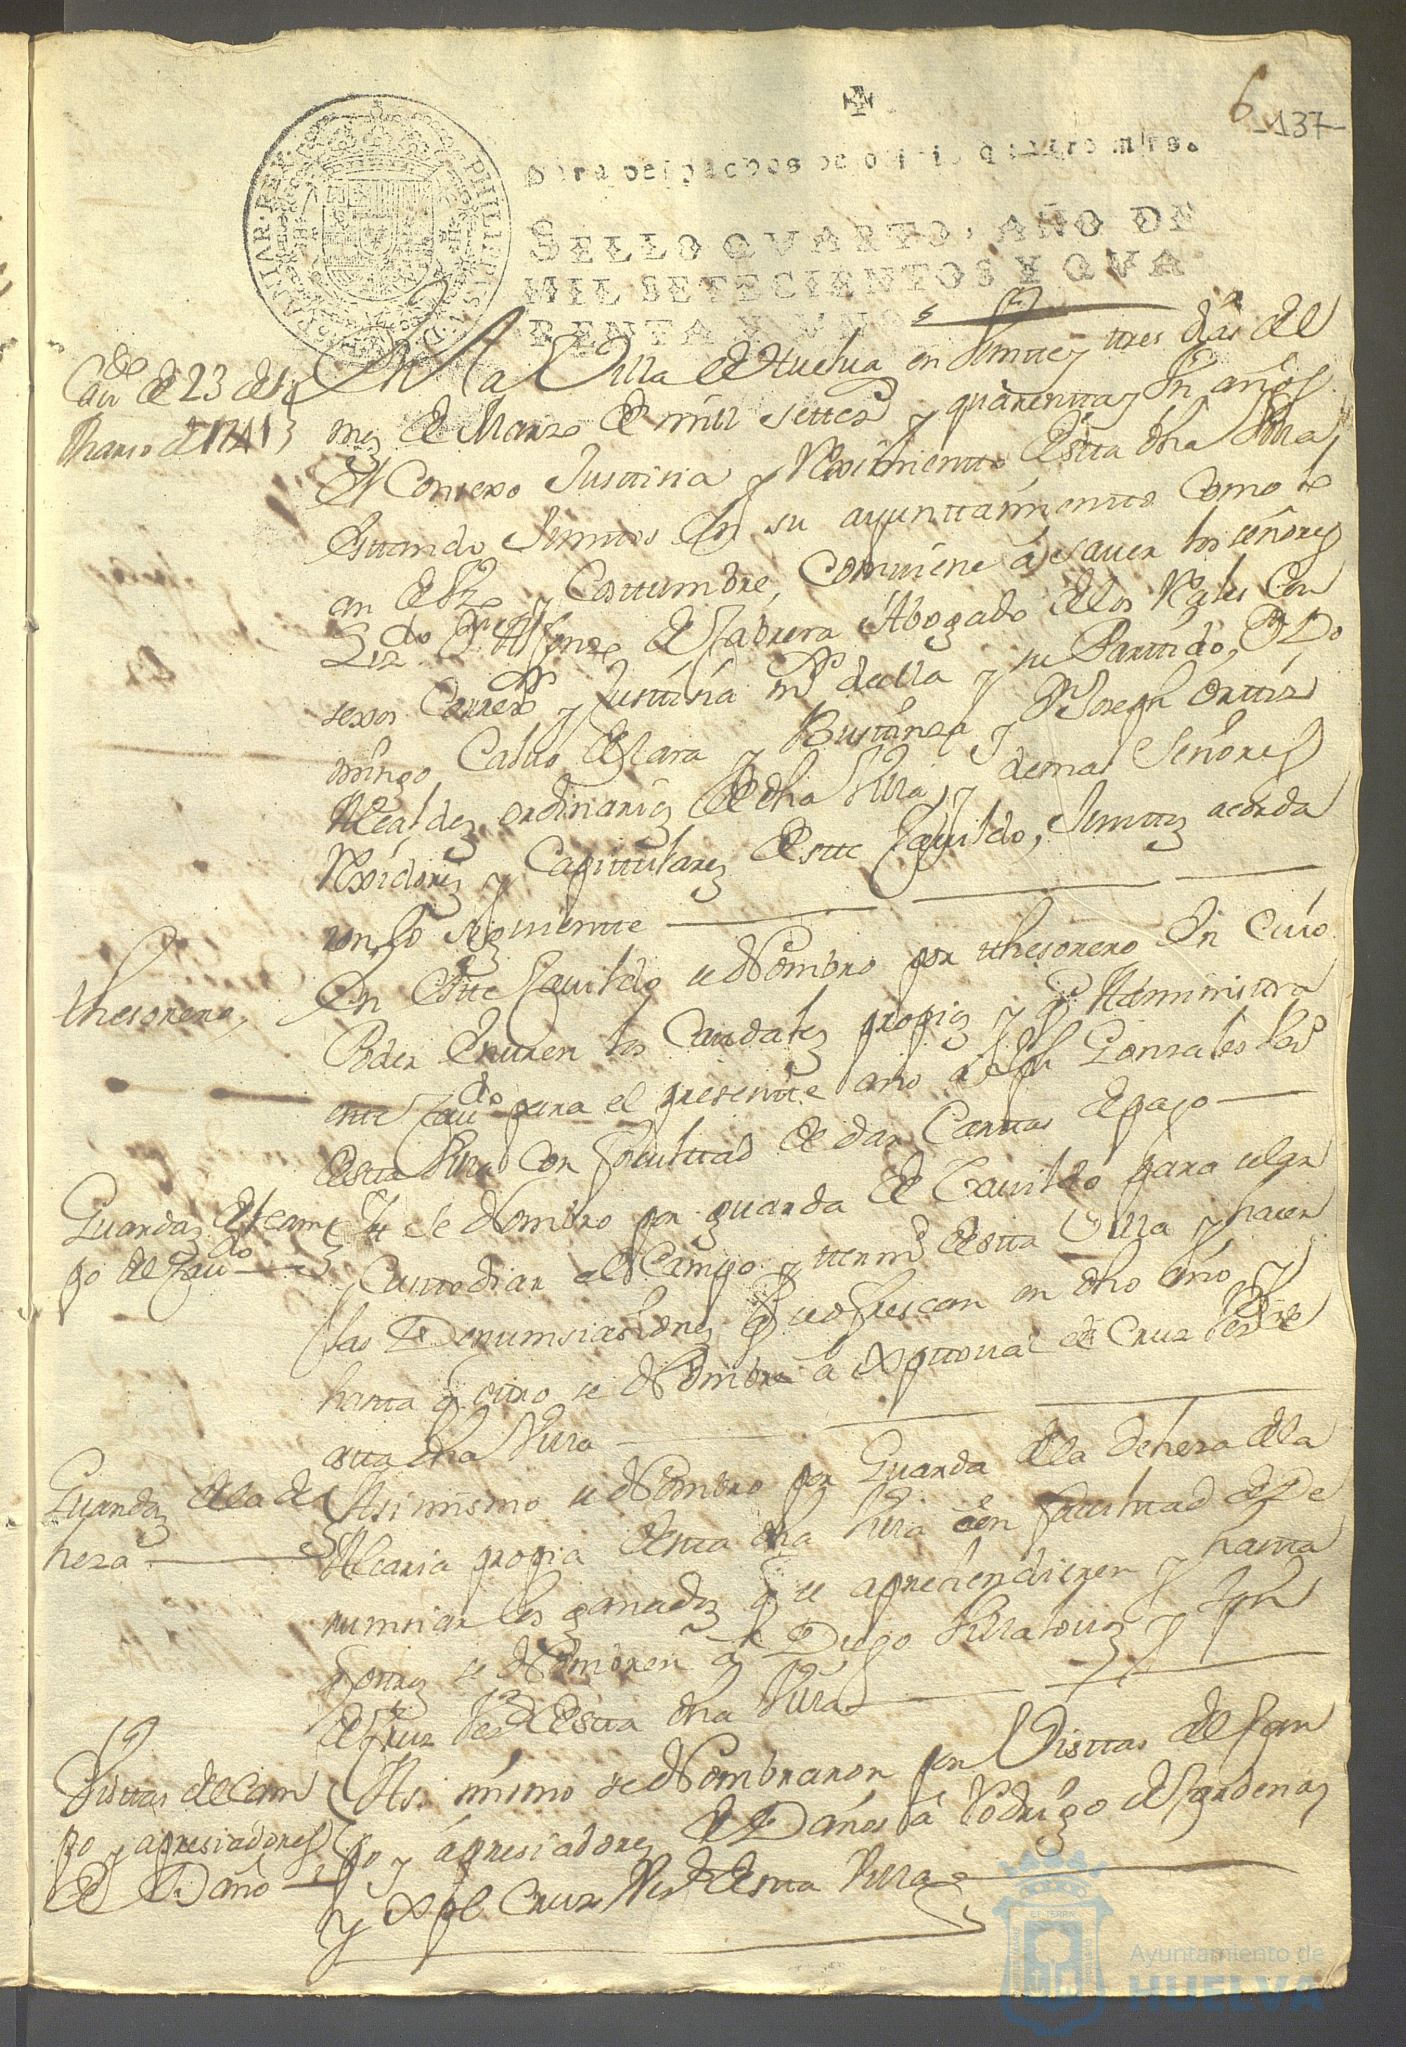 6
-137-
Para despachos de oficio quatro mrs.
SELLO QVARTO, AÑO DE
MIL SETECIENTOS Y QVA
RENTA Y VNO
Cavdo de 23 de
Marso de 1741
En la Villa de Huelva en veinte y tres dias del
mes de Marzo de mill settes y quarentta y Un años
El Consexo Justtisia y Reximientto destta dha Villa
esttando Junttos En su ayunttamientto Como lo
an de Uso y Costtumbre, Combiene á saver los señores
Lizdo Dn Alfonzo de Cabrera Abogado de los Rles Con
sexos Correxor y Justtisia mr de ella y su Parttido, Dn Do
mingo Calvo de Lara y Busttinza y Dn Joseph Orttiz
Alcaldes ordinarios de dha Villa, y demas Señores
Rexidores y Capittulares destte Cavildo, Junttos acorda
ron lo siguientte
thesorero
En estte Cavildo se Nombro por thesorero En cuio
Poder Enttren los Caudales propios y qe Administtra
estte Cavdo para el presentte año á Jph Gonzales Vezo
destta Villa con facultad de dar Carttas de pago
Guardas del cam
po del Cavdo
Yt se Nombro por guarda de Cavildo para celar
y Custtodiar el Campo y ttermo destta Villa y hacer
las Denunsiasiones q se ofrescan en dho año y
hasta q ottro se Nombre á Xpttoval de Cruz Vezo de
estta dha Villa
Guardas de la de
heza
Asi mismo se Nombro por Guarda de la deheza de la
Alcaria propia destta dha Villa con facultad de De
nunsiar los ganados q se aprehendieren y hasta
q ottros se Nombren á Diego Villalovos y Jun
de Cruz Vezs destta dha Villa
Visttas del Cam
po y apresiadores
de Daño
Asi mismo se Nombraron por Visttas del Cam
po y ápresiadores de Daños á Rodrigo de Cardenas
y Xpl Cruz Vezs destta Villa
Ayuntamiento de
HUELVA